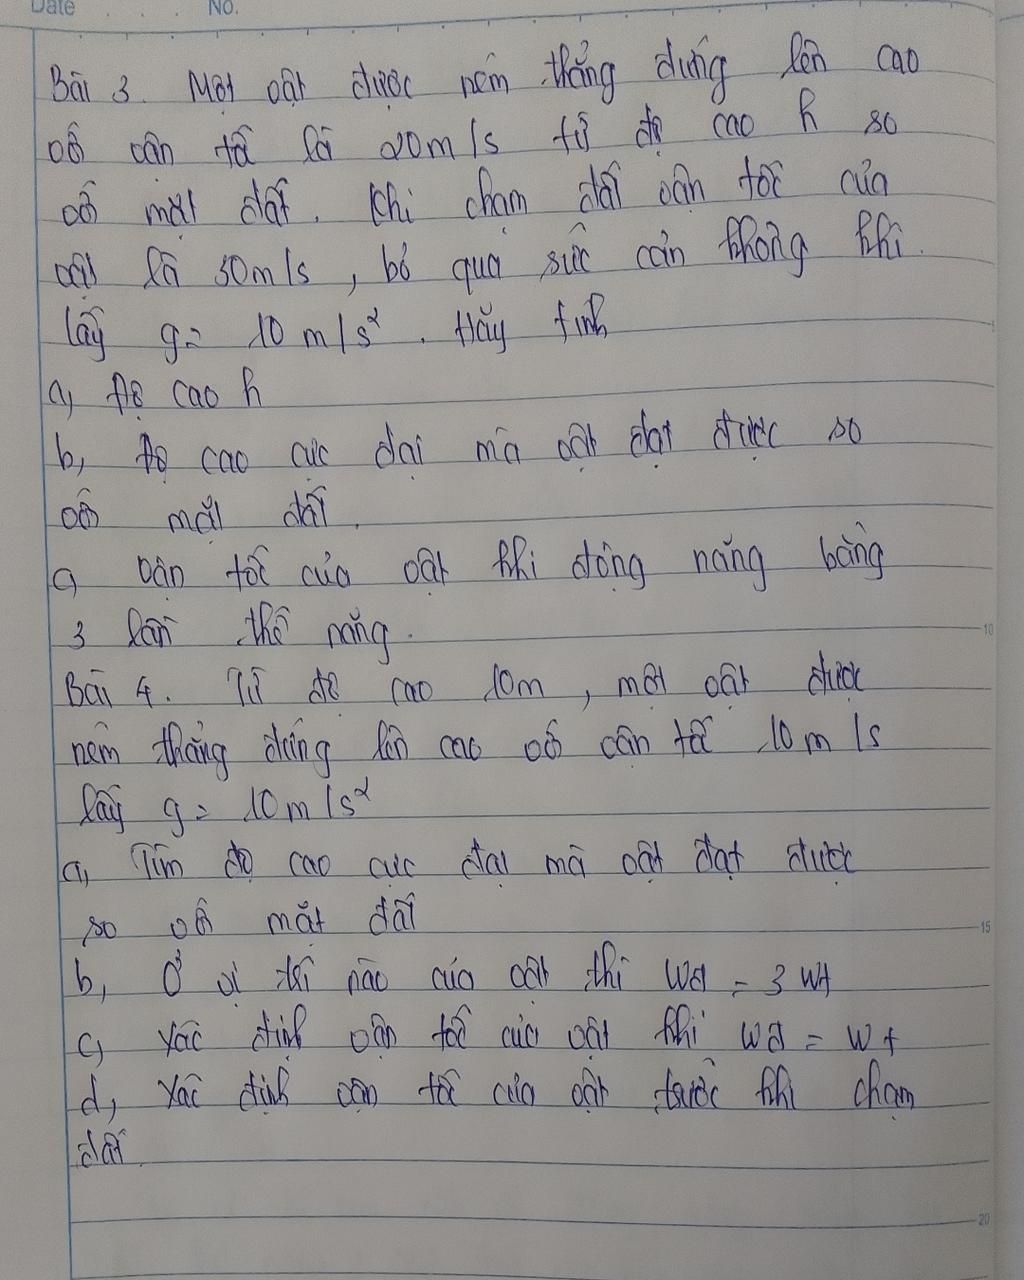 Date No.
Bài 3. Một vật được ném thẳng đứng lên cao
với vận tốc là 20m/s từ độ cao h so
với mặt đất. Khi chạm đất vận tốc của
vật là 30m/s, bỏ qua sức cản không khí.
lấy g= 10m/s². Hãy tính
a, Độ cao h
b, Độ cao cực đại mà vật đạt được so
với mặt đất.
c, Vận tốc của vật khi động năng bằng
3 lần thế năng.
10
Bài 4. Từ độ cao 10m, một vật được
ném thẳng đứng lên cao với vận tốc 10m/s
lấy g= 10m/s²
a, Tìm độ cao cực đại mà vật đạt được
so với mặt đất
15
b, Ở vị trí nào của vật thì Wđ = 3 Wt
c, Xác định vận tốc của vật khi Wđ = Wt
d, Xác định vận tốc của vật trước khi chạm
đất.
20